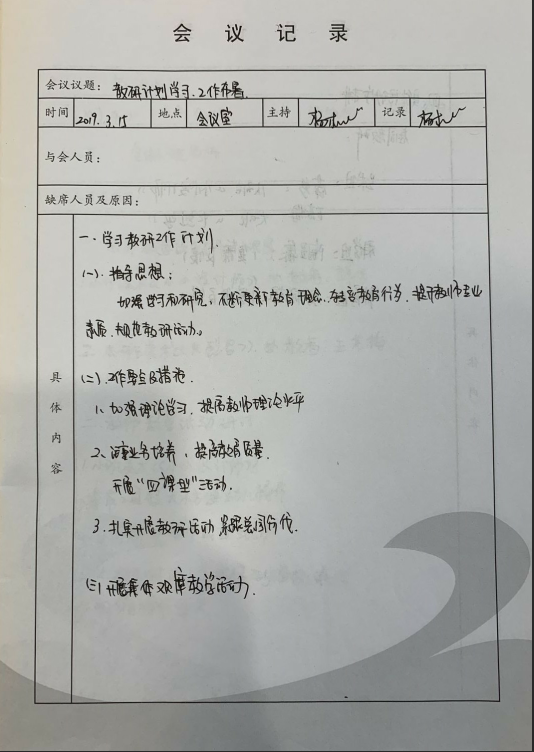 会议记录
会议议题：教研计划学习.工作布署
时间 2019.3.15 地点 会议室 主持 杨 记录 杨
与会人员：
缺席人员及原因：
具体内容
一.学习教研工作计划.
(一).指导思想：
加强学习和研究，不断更新教育理念.教育行为.提升教师专业
素质.规范教研活动。
(二).工作重点及措施.
1.加强理论学习.提高教师理论水平
2.业务培养，提高教育质量.
开展“四课型”活动.
3.扎实开展教研活动
(三)开展集体观摩教学活动.